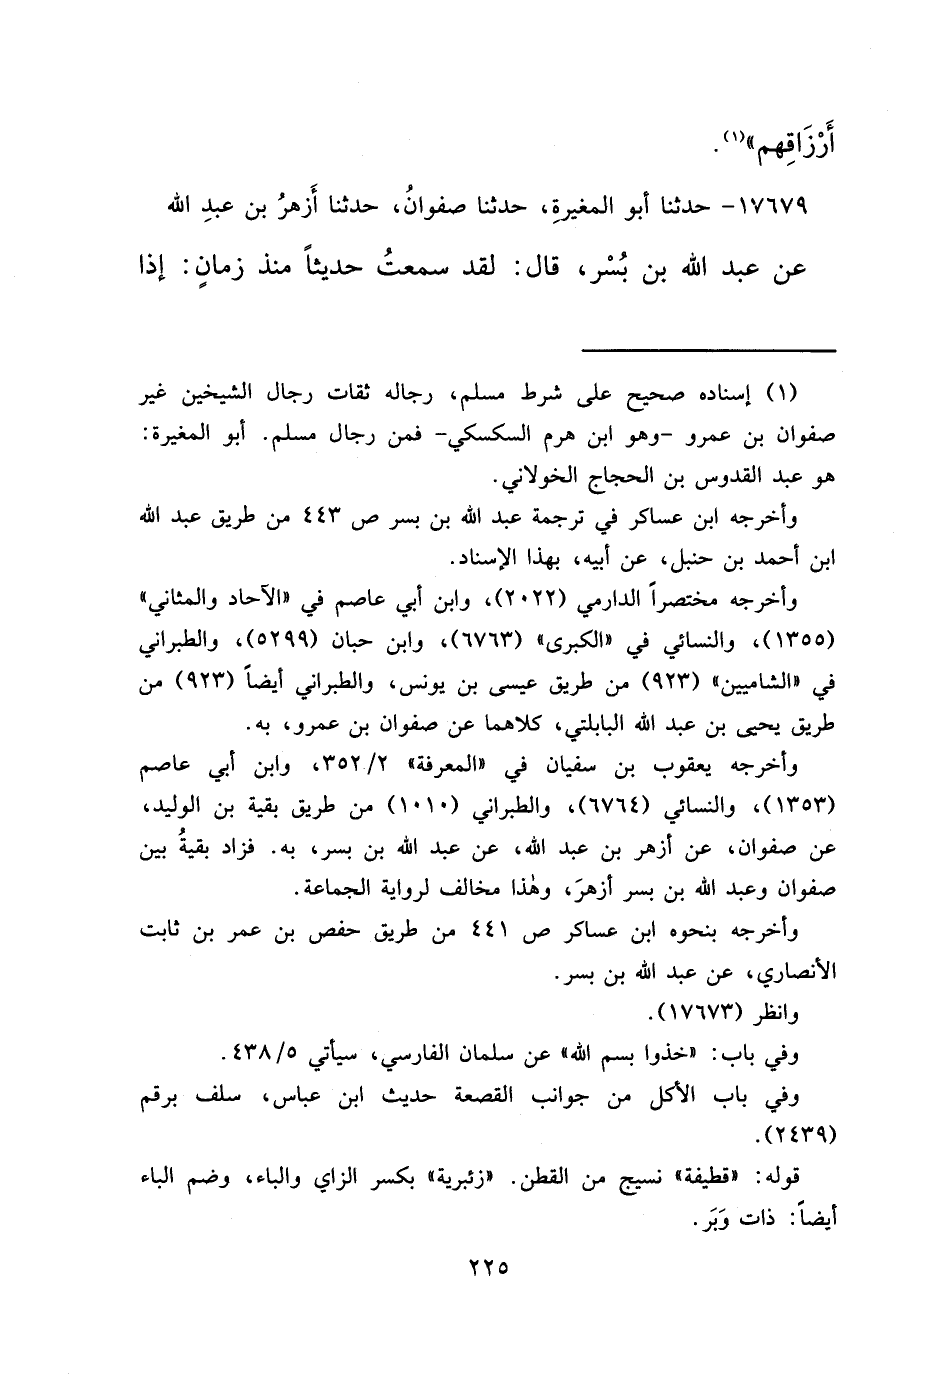 أَرْزَاقِهم»(١).
١٧٦٧٩- حدثنا أبو المغيرةِ، حدثنا صفوانُ، حدثنا أَزهرُ بن عبدِ الله
عن عبد الله بن بُسْر، قال: لقد سمعتُ حديثاً منذ زمانٍ: إذا
(١) إسناده صحيح على شرط مسلم، رجاله ثقات رجال الشيخين غير
صفوان بن عمرو -وهو ابن هرم السكسكي- فمن رجال مسلم. أبو المغيرة:
هو عبد القدوس بن الحجاج الخولاني.
وأخرجه ابن عساكر في ترجمة عبد الله بن بسر ص ٤٤٣ من طريق عبد الله
ابن أحمد بن حنبل، عن أبيه، بهذا الإسناد.
وأخرجه مختصراً الدارمي (٢٠٢٢)، وابن أبي عاصم في «الآحاد والمثاني»
(١٣٥٥)، والنسائي في «الكبرى» (٦٧٦٣)، وابن حبان (٥٢٩٩)، والطبراني
في «الشاميين» (٩٢٣) من طريق عيسى بن يونس، والطبراني أيضاً (٩٢٣) من
طريق يحيى بن عبد الله البابلتي، كلاهما عن صفوان بن عمرو، به.
وأخرجه يعقوب بن سفيان في «المعرفة» ٣٥٢/٢، وابن أبي عاصم
(١٣٥٣)، والنسائي (٦٧٦٤)، والطبراني (١٠١٠) من طريق بقية بن الوليد،
عن صفوان، عن أزهر بن عبد الله، عن عبد الله بن بسر، به. فزاد بقيةُ بين
صفوان وعبد الله بن بسر أزهرَ، وهٰذا مخالف لرواية الجماعة.
وأخرجه بنحوه ابن عساكر ص ٤٤١ من طريق حفص بن عمر بن ثابت
الأنصاري، عن عبد الله بن بسر.
وانظر (١٧٦٧٣).
وفي باب: «خذوا بسم الله» عن سلمان الفارسي، سيأتي ٤٣٨/٥.
وفي باب الأكل من جوانب القصعة حديث ابن عباس، سلف برقم
(٢٤٣٩).
قوله: «قطيفة» نسيج من القطن. «زئبرية» بكسر الزاي والباء، وضم الباء
أيضاً: ذات وَبَر.
٢٢٥